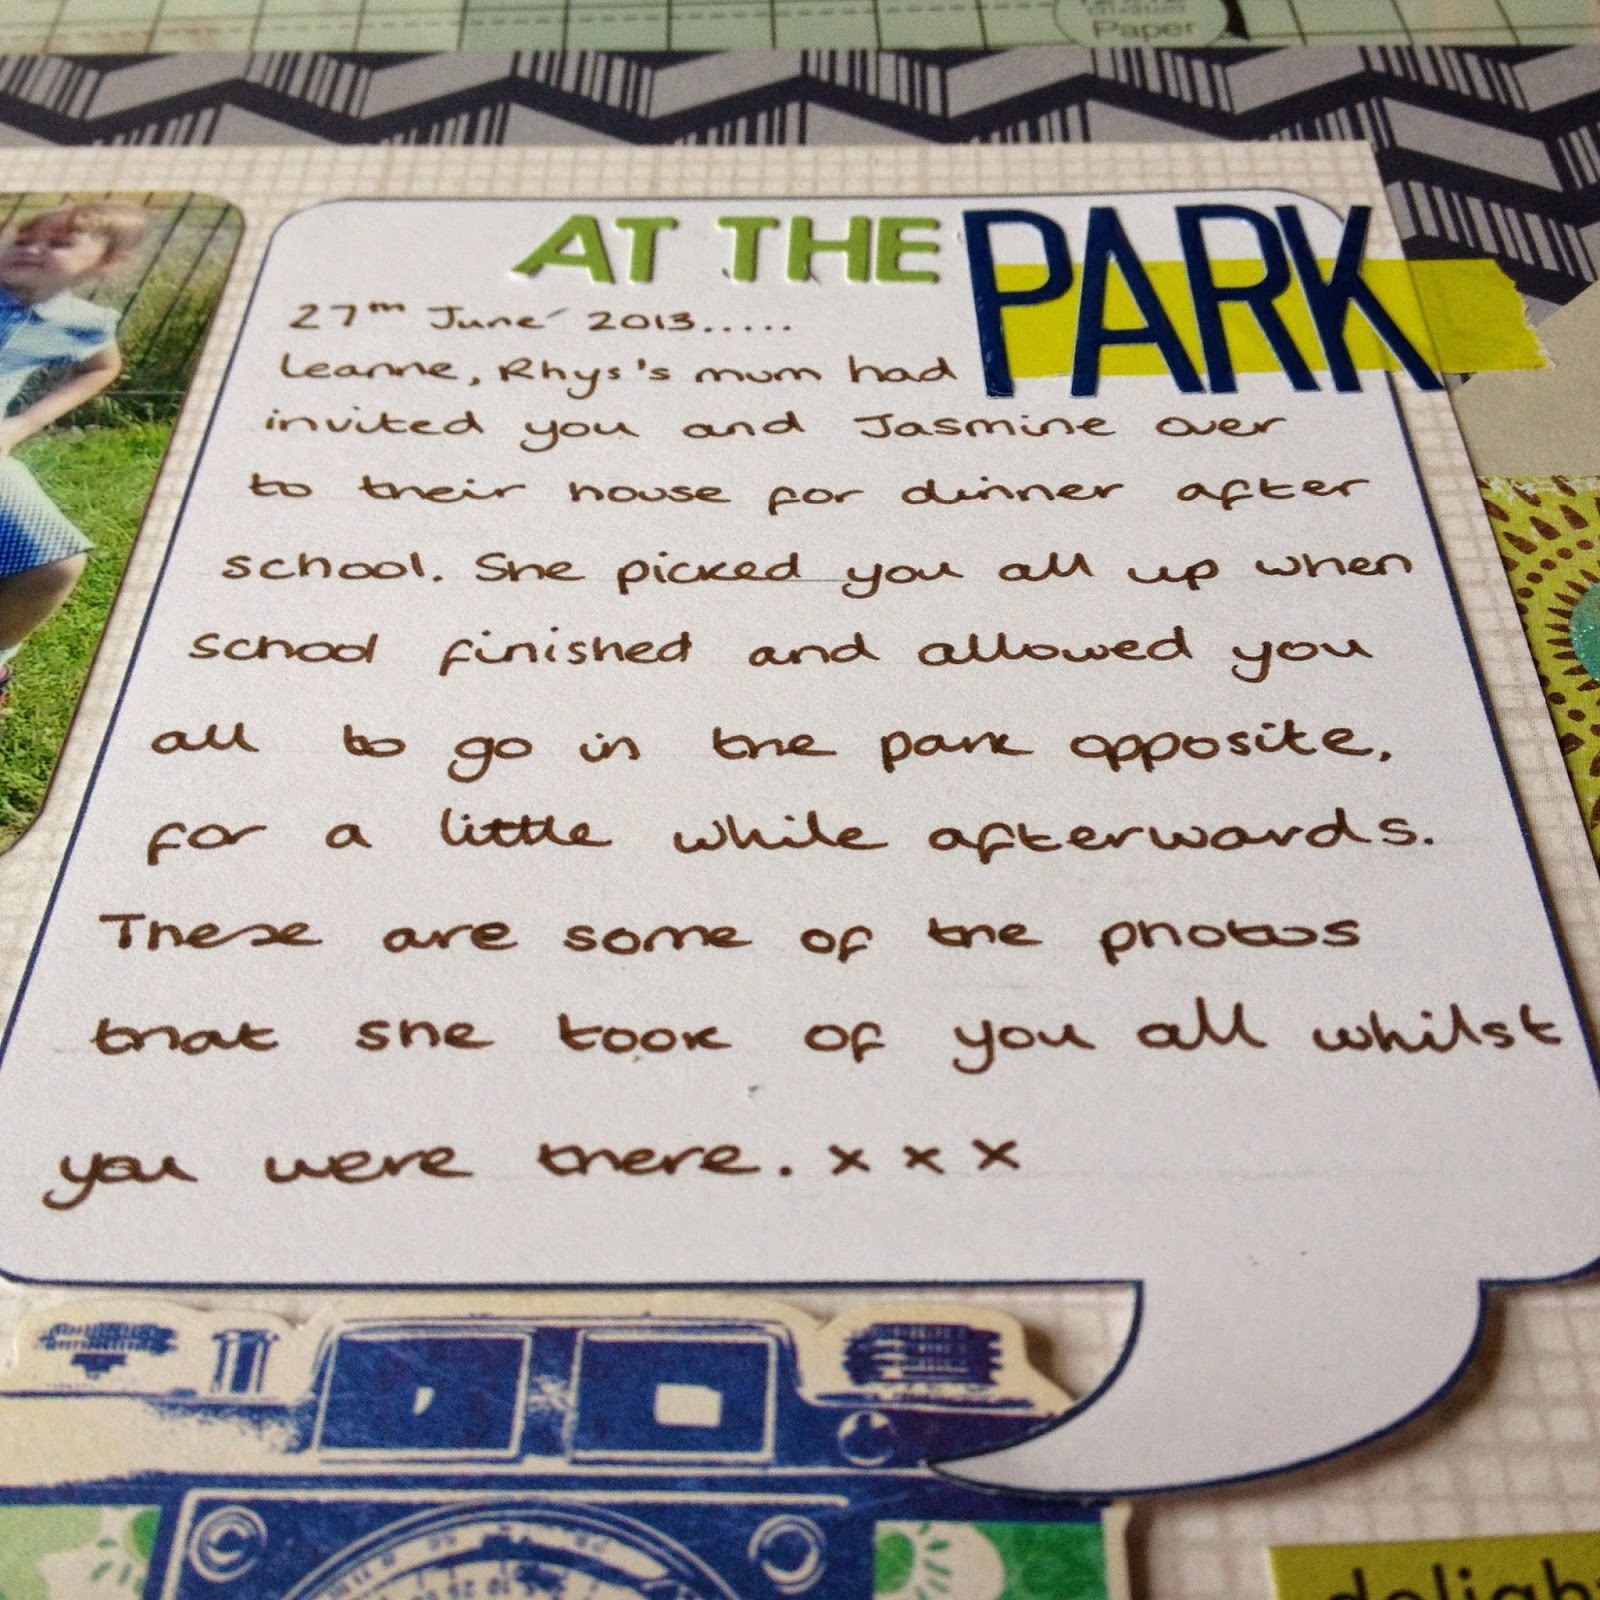 Paper
AT THE PARK
27th June 2013.....
Leanne, Rhys's mum had
invited you and Jasmine over
to their house for dinner after
school. She picked you all up when
school finished and allowed you
all to go in the park opposite,
for a little while afterwards.
These are some of the photos
that she took of you all whilst
you were there. x x x